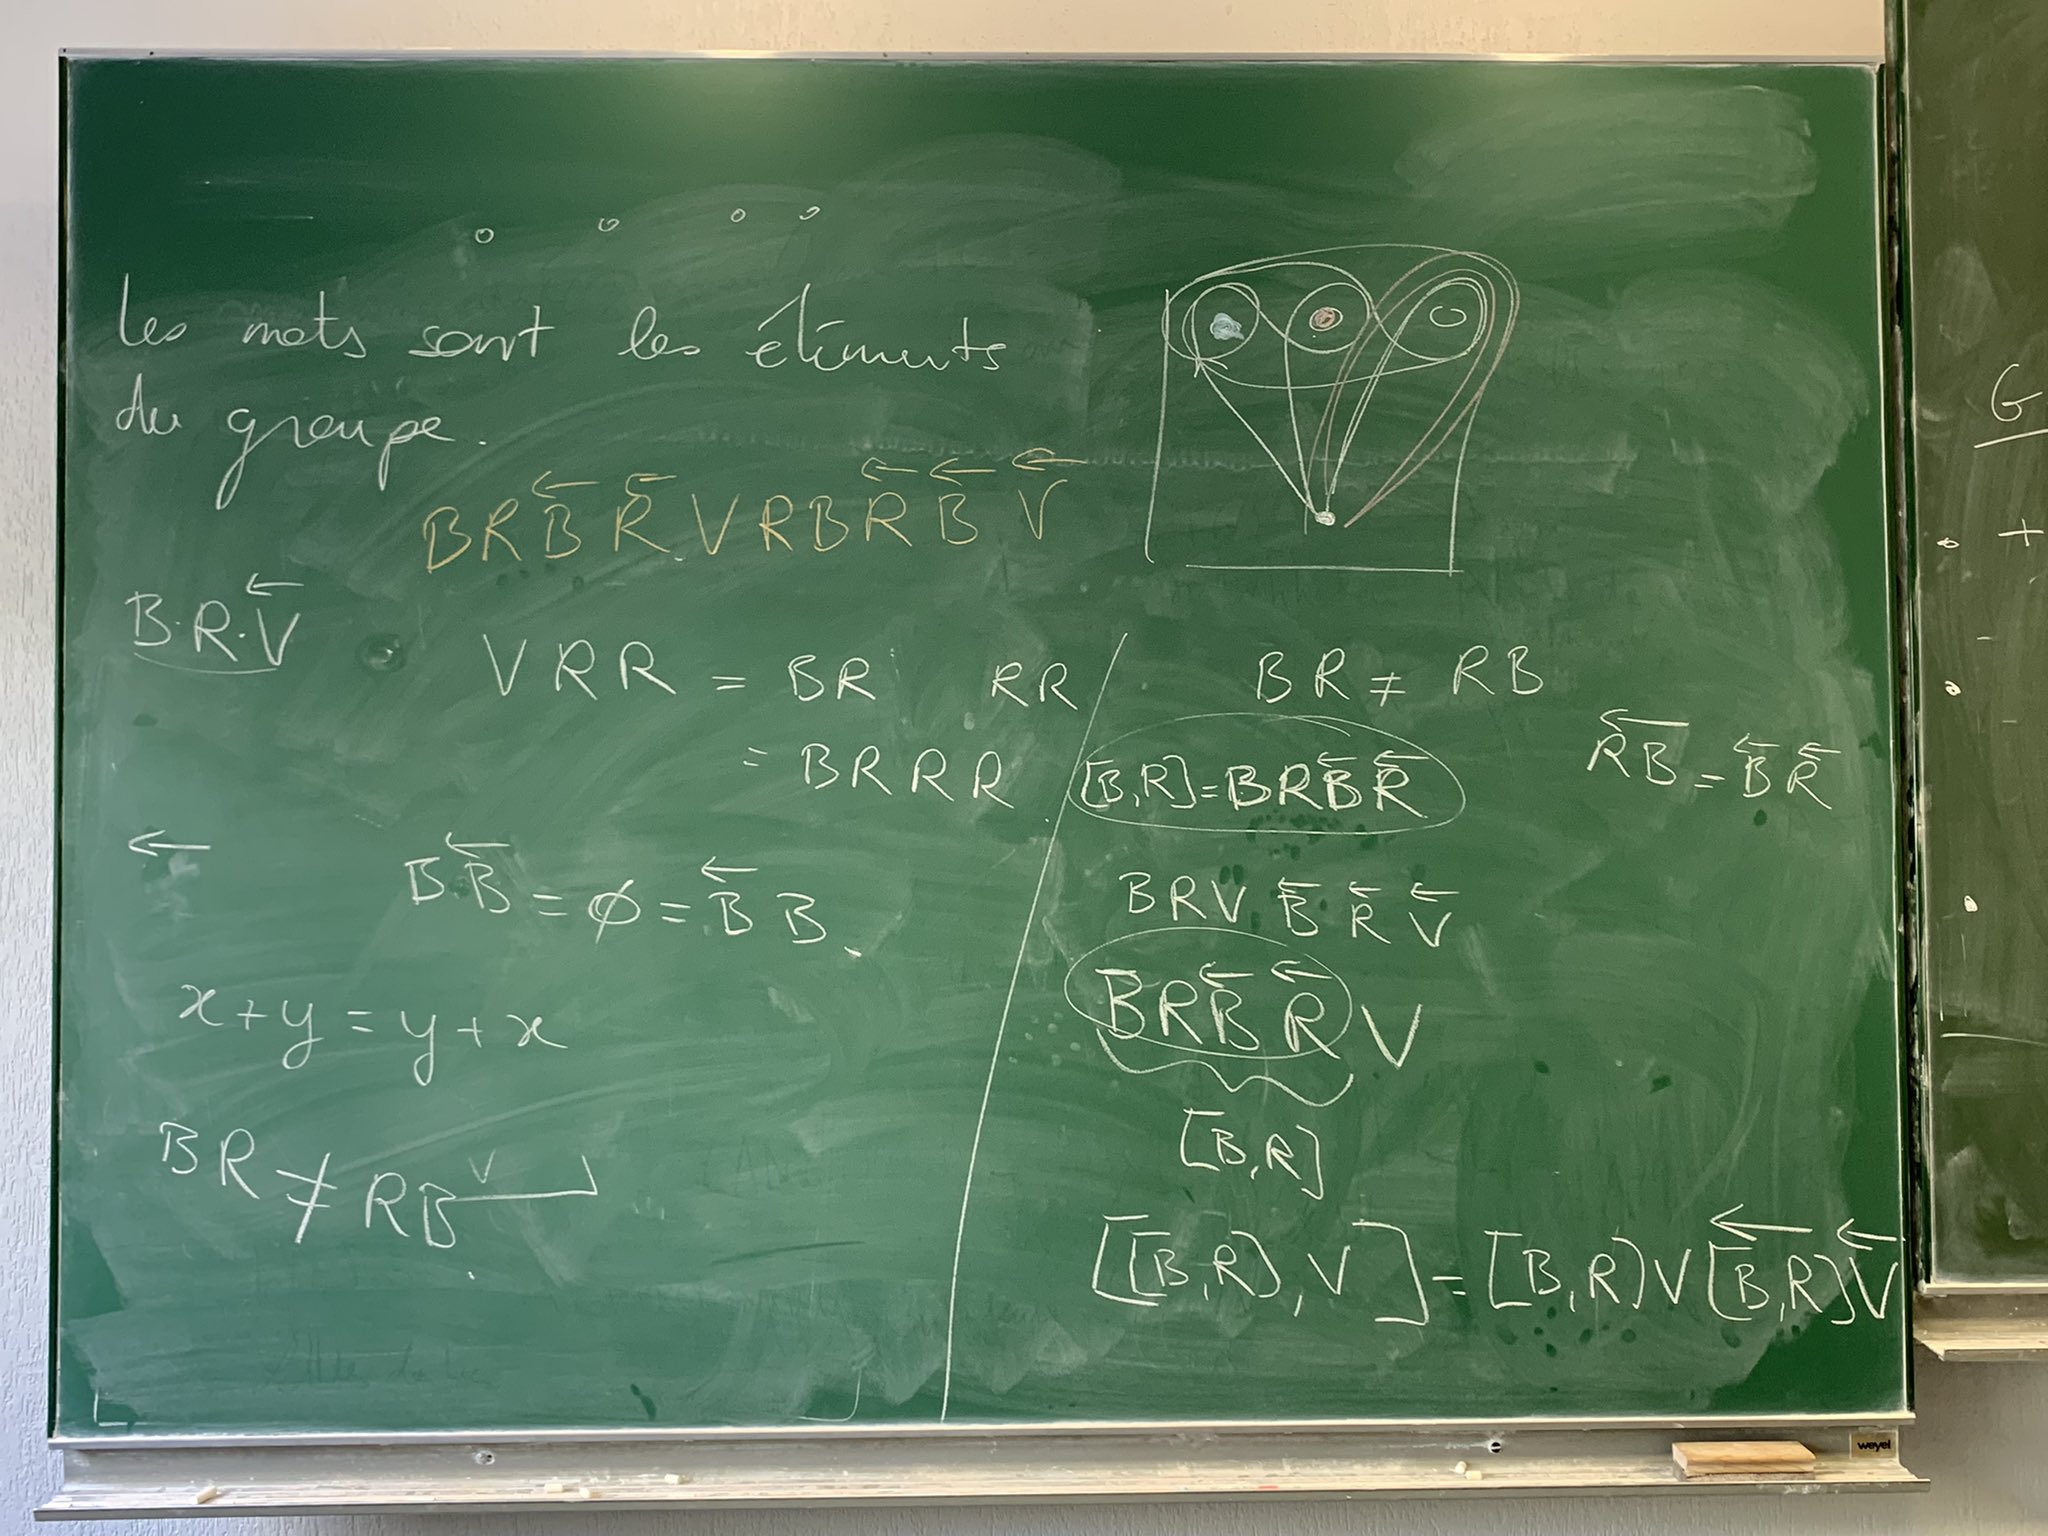 Les mots sont les éléments
du groupe.
B R B⃖ R⃖ V R B R⃖ B⃖ V⃖
B·R·V⃖
V R R = B R   R R
= B R R R
←
B B⃖ = ∅ = B⃖ B
x + y = y + x
B R ≠ R B V
B R ≠ R B
[B,R] = B R B⃖ R⃖
R⃖B⃖ = B⃖ R⃖
B R V B⃖ R⃖ V⃖
B R B⃖ R⃖ V
[B,R]
[[B,R], V] = [B,R] V [B,R]⃖ V⃖
G
+
-
-
weyel